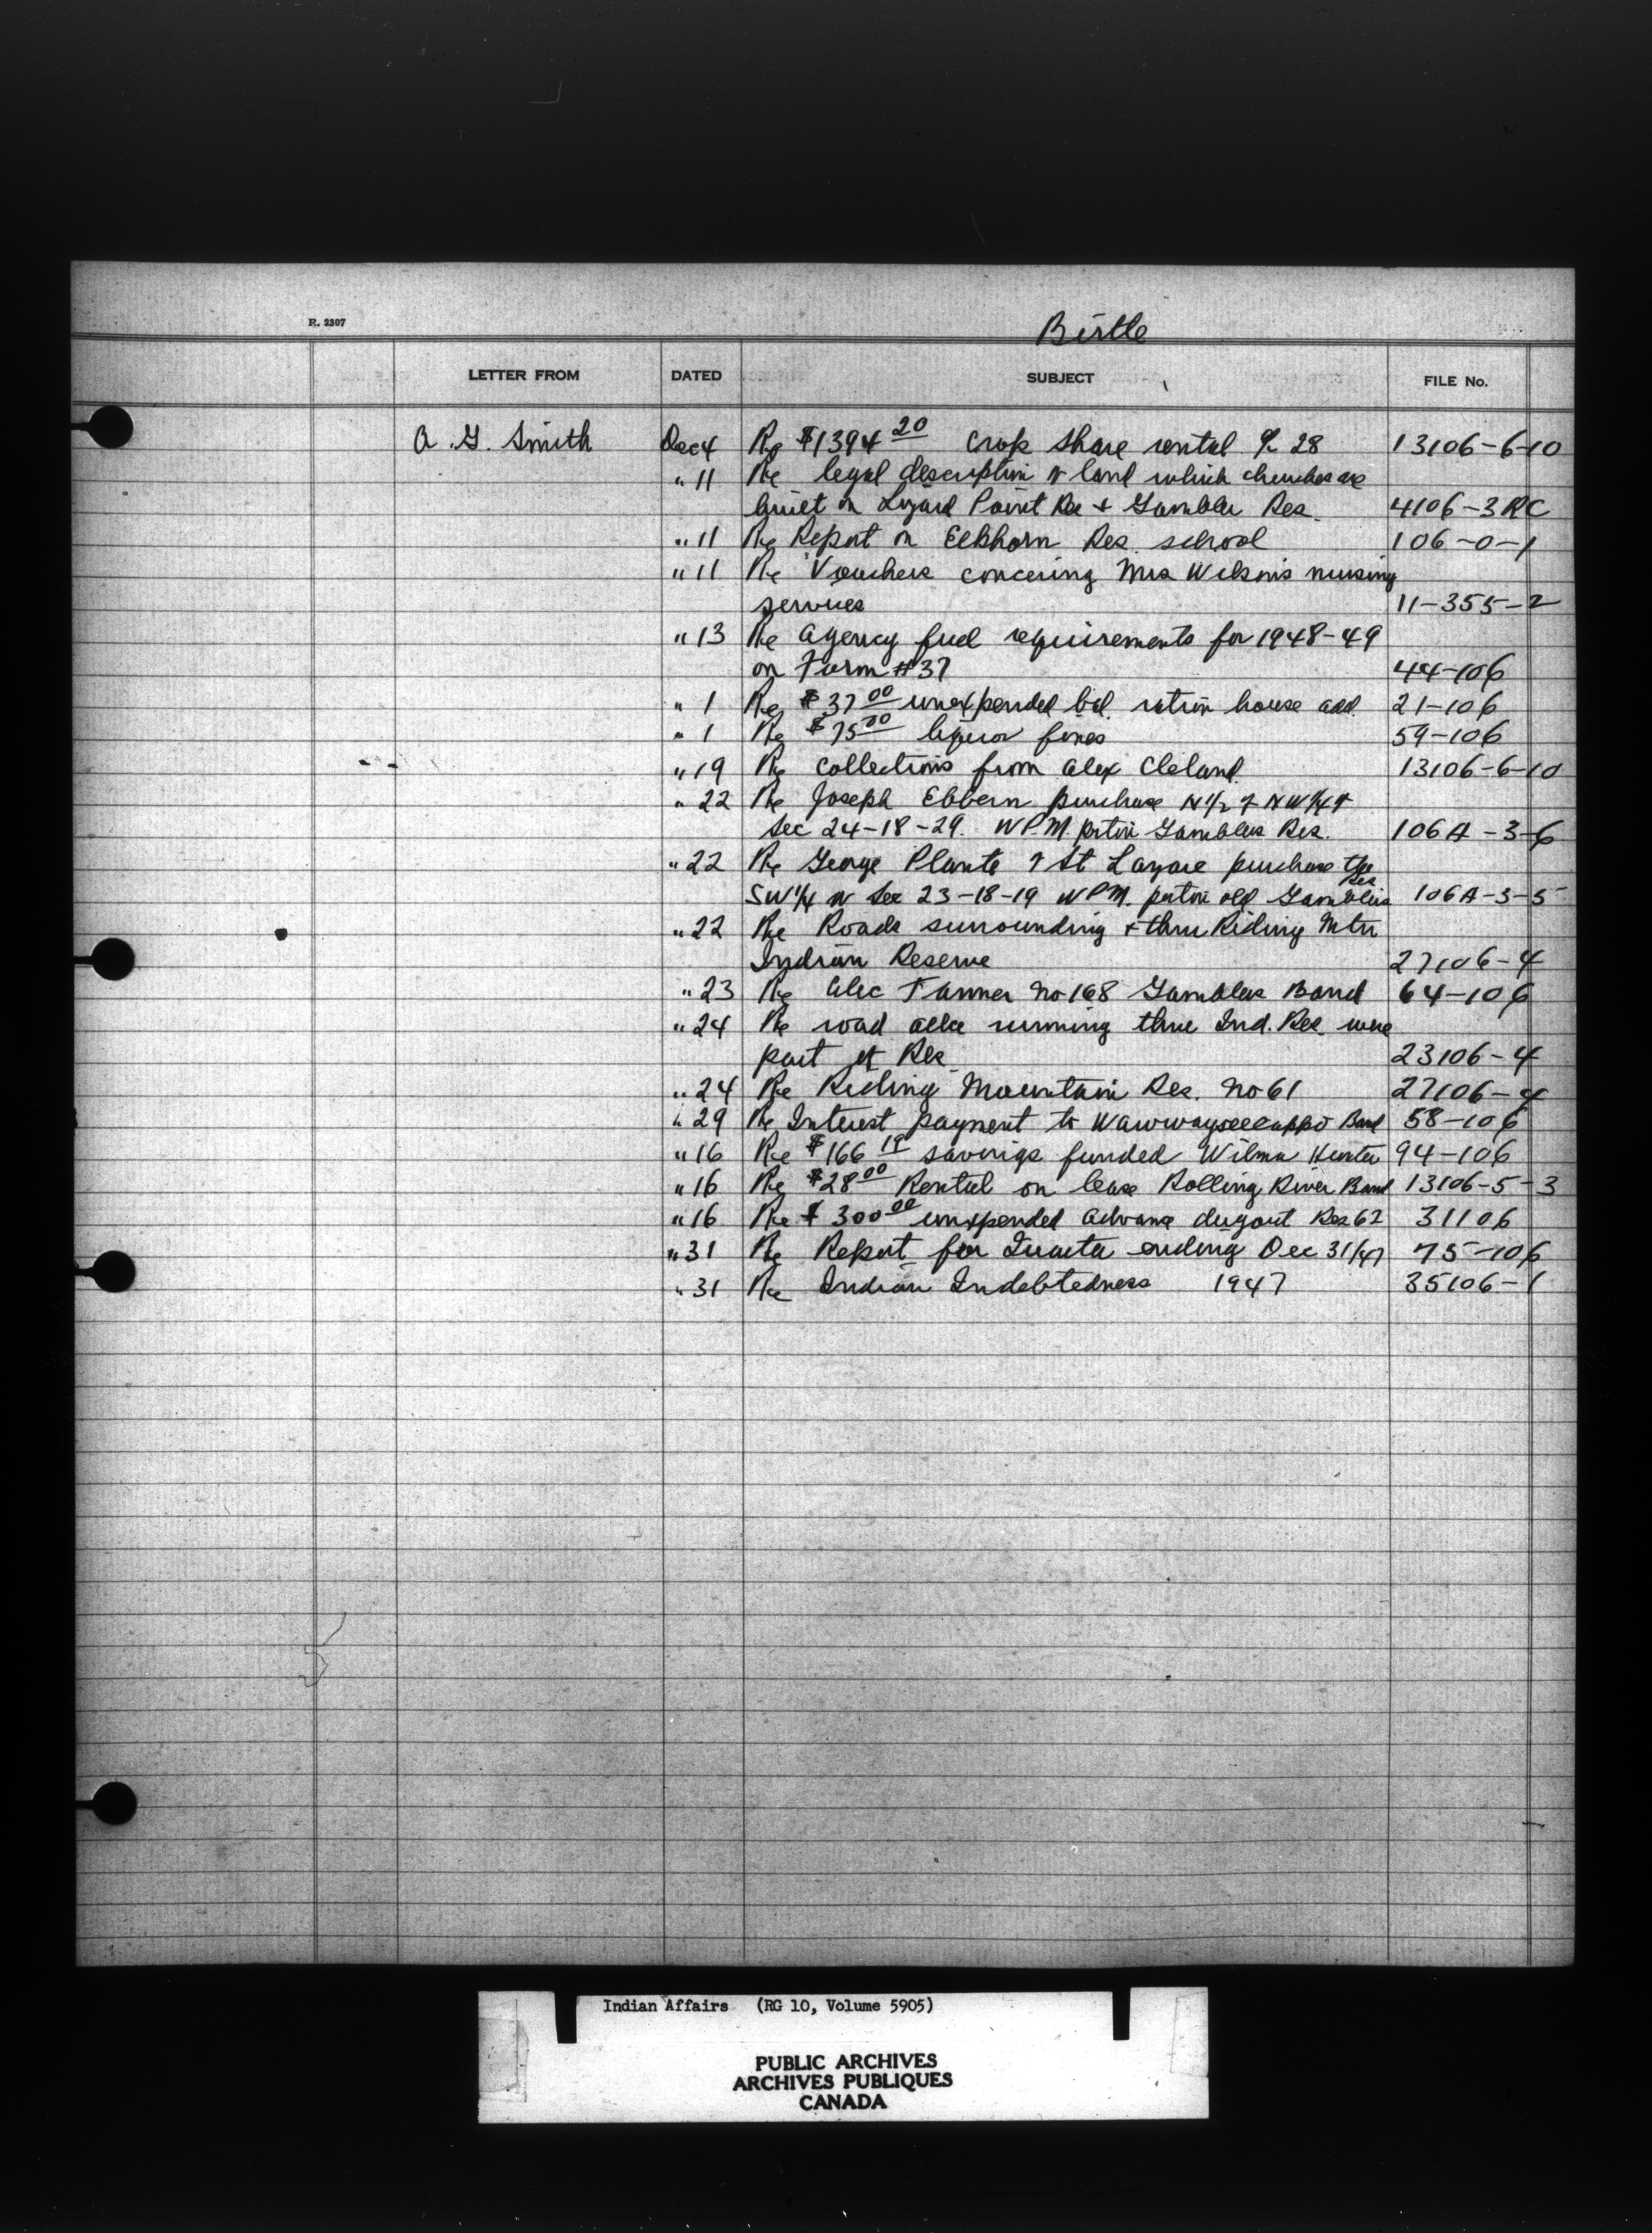 R. 2307
Birtle
LETTER FROM DATED SUBJECT FILE No.
A. G. Smith Dec 4 Re $1394 20 crop share rental % 28 13106-6-10
" 11 Re legal description of land which churches are
built on Lizard Point Res + Gambler Res. 4106-3RC
" 11 Re Report on Elkhorn Res. school 106-0-1
" 11 Re Vouchers concering Mrs Wilson's nursing
services 11-355-2
" 13 Re agency fuel requirements for 1948-49
on Form #37 44-106
" 1 Re $37 00 unexpended bal. ration house add. 21-106
" 1 Re $75 00 liquor fines 59-106
" 19 Re collections from Alex Cleland. 13106-6-10
" 22 Re Joseph Ebbern purchase N 1/2 of NW 1/4 of
Sec 24-18-29. WPM. ptn Gamblers Res. 106A-3-6
" 22 Re George Plante of St Lazare purchase the
SW 1/4 of Sec 23-18-19 WPM. ptn old Gamblers Res 106A-3-5
" 22 Re Roads surrounding + thru Riding Mtn
Indian Reserve 27106-4
" 23 Re Alec Tanner No 168 Gamblers Band 64-106
" 24 Re road allce running thru Ind. Res. were
part of Res. 23106-4
" 24 Re Riding Mountain Res. No 61 27106-4
" 29 Re Interest payment to Waywayseecappo Band 58-106
" 16 Re $166 19 savings funded Wilma Hunter 94-106
" 16 Re $28 00 Rental on lease Rolling River Band 13106-5-3
" 16 Re $300 00 unexpended advance dugout Res 62 31106
" 31 Re Report for Quarter ending Dec 31/47 75-106
" 31 Re Indian Indebtedness 1947 35106-1
Indian Affairs (RG 10, Volume 5905)
PUBLIC ARCHIVES
ARCHIVES PUBLIQUES
CANADA